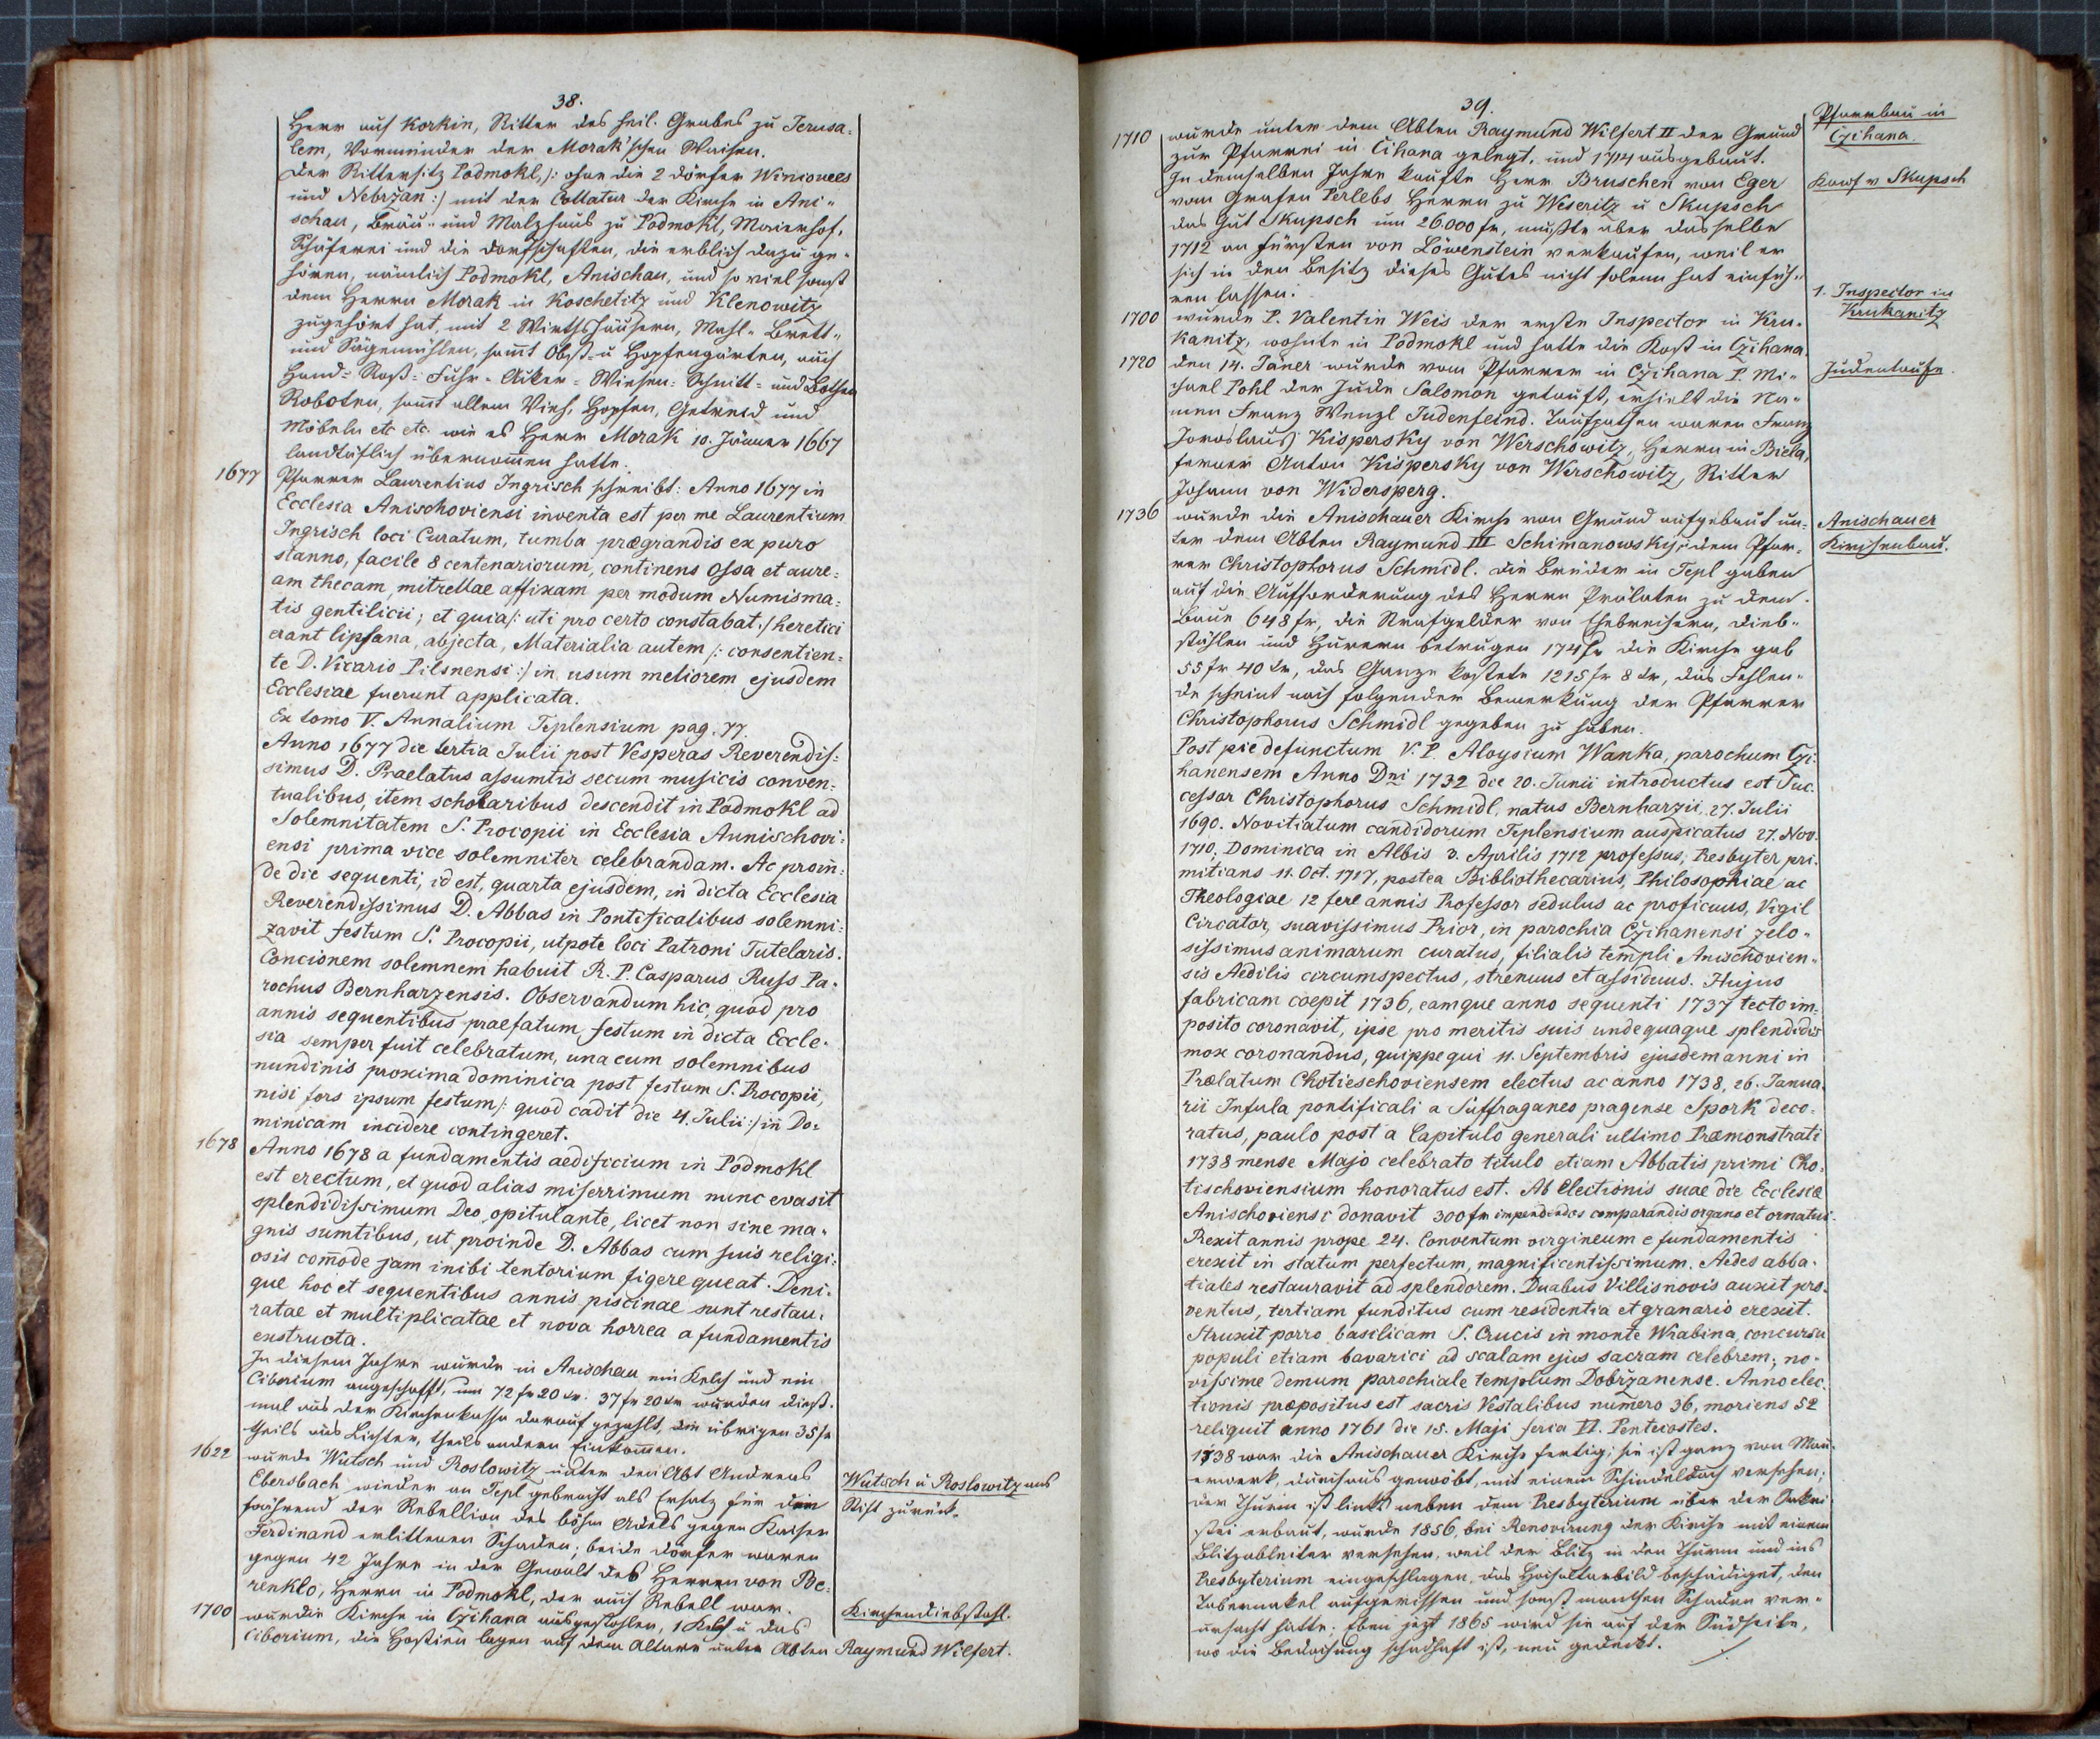 38.
Herr auf Korkin, Ritter des heil. Grabes zu Jerusa-
lem, Vormünder der Morak'schen Waisen.
Der Rittersitz Podmokl, /: ohne die 2 Dörfer Winiowees
und Nebržan :/ mit der Collatur der Kirche in Ani-
schau, Bräu- und Malzhaus zu Podmokl, Maierhof,
Schäferei und die Dorfschaften, die erblich dazu ge-
hören, nämlich Podmokl, Anischau, und so viel sonst
dem Herrn Morak in Koschetitz und Klenowitz
zugehört hat, mit 2 Wirthshäusern, Mahl- Brett-
und Sägemühlen, sammt Obst- u Hopfengärten, auch
Hand- Roß- Fuhr- Acker- Wiesen- Schnitt- und Bothen
Roboten, samt allem Vieh, Hopfen, Getreid und
Möbeln etc etc. wie es Herr Morak 10. Jänner 1667
landtäflich übernomen hatte.
1677 Pfarrer Laurentius Ingrisch schreibt: Anno 1677 in
Ecclesia Anischoviensi inventa est per me Laurentium
Ingrisch loci Curatum, tumba prægrandis ex puro
stanno, facile 8 centenariorum, continens ossa et aure-
am thecam, mitrellae affixam per modum Numisma-
tis gentilicii; et quia /: uti pro certo constabat :/ heretici
erant lipsana, abjecta, Materialia autem /: consentien-
te D. Vicario Pilsnensi :/ in usum meliorem ejusdem
Ecclesiae fuerunt applicata.
Ex tomo V. Annalium Teplensium pag. 77.
Anno 1677 die tertia Julii post Vesperas Reverendis-
simus D. Praelatus assumtis secum musicis conven-
tualibus, item scholaribus descendit in Podmokl ad
Solemnitatem S. Procopii in Ecclesia Annischovi-
ensi prima vice solemniter celebrandam. Ac proin-
de die sequenti, id est, quarta ejusdem, in dicta Ecclesia
Reverendissimus D. Abbas in Pontificalibus solemni-
zavit festum S. Procopii, utpote loci Patroni Tutelaris.
Concionem solemnem habuit R. P. Casparus Russ Pa-
rochus Bernharzensis. Observandum hic, quod pro
annis sequentibus praefatum festum in dicta Eccle-
sia semper fuit celebratum, una cum solemnibus
nundinis proxima dominica post festum S. Procopii,
nisi fors ipsum festum /: quod cadit die 4. Julii :/ in Do-
minicam incidere contingeret.
1678 Anno 1678 a fundamentis aedificium in Podmokl
est erectum, et quod alias miserrimum nunc evasit
splendidissimum Deo opitulante, licet non sine ma-
gnis sumtibus, ut proinde D. Abbas cum suis religi-
osis comode jam inibi tentorium figere queat. Deni-
que hoc et sequentibus annis piscinae sunt restau-
ratae et multiplicatae et nova horrea a fundamentis
exstructa.
In diesem Jahre wurde in Anischau ein Kelch und ein
Ciborium angeschafft, um 72 fr 20 Kr. 37 fr 20 Kr wurden dieß-
mal aus der Kirchenkassa darauf gezahlt, die übrigen 35 fr
theils aus Lichter, theils andern Einkomen.
1622 wurde Wutsch und Roslowitz unter den Abt Andreas
Ebersbach wieder an Tepl gebracht als Ersatz für den
während der Rebellion des böhm Adels gegen Kaiser
Ferdinand erlittenen Schaden; beide Dörfer waren
gegen 42 Jahre in der Gewalt des Herren von Pe-
renklo, Herrn in Podmokl, der auch Rebell war.
Wutsch u Roslowitz ans
Stift zurück.
1700 wurde die Kirche in Czihana ausgestohlen, 1 Kelch u das
Kirchendiebstahl.
Ciborium, die Hostien lagen auf dem Altare unter Abten Raymund Wilfert.
39.
1710 wurde unter dem Abten Raymund Wilfert II der Grund
zur Pfarrei in Cihana gelegt, und 1714 ausgebaut.
Pfarrbau in
Czihana.
In demselben Jahre kaufte Herr Bruschen von Eger
vom Grafen Perlebs Herrn zu Weseritz u Skupsch
das Gut Skupsch um 26.000 fr, mußte aber dasselbe
1712 an Fürsten von Löwenstein verkaufen, weil er
sich in den Besitz dieses Gutes nicht solenn hat einfüh-
ren lassen.
Kauf v Skupsch
1700 wurde P. Valentin Weis der erste Inspector in Kru-
kanitz, wohnte in Podmokl und hatte die Kost in Czihana.
1. Inspector in
Krukanitz
1720 den 14. Jäner wurde vom Pfarrer in Czihana P. Mi-
chael Pohl der Jude Salomon getauft, erhielt die Na-
men Franz Wenzl Judenfeind. Taufpathen waren Franz
Joroslaus Kispersky von Werschowitz, Herrn in Biela,
ferner Anton Kispersky von Werschowitz, Ritter
Johann von Widersperg.
Judentaufe.
1736 wurde die Anischauer Kirche von Grund aufgebaut un-
ter dem Abten Raymund III Schimanowsky, dem Pfar-
rer Christophorus Schmidl. Die Brüder in Tepl gaben
auf die Aufforderung des Herrn Prälaten zu dem
Baue 648 fr, die Strafgelder von Ehebrechern, Dieb-
stählen und Hurern betrugen 174 fr die Kirche gab
55 fr 40 Kr, das Ganze kostete 1215 fr 8 Kr, das Fehlen-
de scheint nach folgender Bemerkung der Pfarrer
Christophorus Schmidl gegeben zu haben.
Anischauer
Kirchenbau.
Post pie defunctum V. P. Aloysium Wanka, parochum Czi-
hanensem Anno Dni 1732 die 20. Junii introductus est Suc-
cessor Christophorus Schmidl, natus Bernharzii, 27. Julii
1690. Novitiatum candidorum Teplensium auspicatus 27. Nov.
1710, Dominica in Albis 3. Aprilis 1712 professus, Presbyter pri-
mitians 11. Oct. 1717, postea Bibliothecarius, Philosophiae ac
Theologiae 12 fere annis Professor sedulus ac proficuus, Vigil
Circator, suavissimus Prior, in parochia Czihanensi zelo-
sissimus animarum curatus, filialis templi Anischovien-
sis Aedilis circumspectus, strenuus et assiduus. Hujus
fabricam coepit 1736, eamque anno sequenti 1737 tecto im-
posito coronavit, ipse pro meritis suis undequaque splendidis
mox coronandus, quippe qui 11. Septembris ejusdem anni in
Prælatum Chotieschoviensem electus ac anno 1738, 26. Janua-
rii Infula pontificali a Suffraganeo pragense Spork deco-
ratus, paulo post a Capitulo generali ultimo Præmonstrati
1738 mense Majo celebrato titulo etiam Abbatis primi Cho-
tischoviensium honoratus est. Ab Electionis suae die Ecclesiæ
Anischoviensi donavit 300 fr impendendos comparandis organo et ornatui.
Rexit annis prope 24. Conventum virgineum e fundamentis
erexit in statum perfectum, magnificentissimum. Aedes abba-
tiales restauravit ad splendorem. Duabus Villis novis auxit pro-
ventus, tertiam funditus cum residentia et granario erexit.
Struxit porro basilicam S. Crucis in monte Wrabina, concursu
populi etiam bavarici ad scalam ejus sacram celebrem; no-
vissime demum parochiale templum Dobržanense. Anno elec-
tionis præpositus est sacris Vestalibus numero 36, moriens 52
reliquit anno 1761 die 15. Maji feria VI. Pentecostes.
1738 war die Anischauer Kirche fertig; sie ist ganz von Mau-
erwerk, durchaus gewölbt, mit einem Schindeldach versehen;
der Thurm ist links neben dem Presbyterium über der Sakri-
stei erbaut, wurde 1856, bei Renovirung der Kirche mit einem
Blitzableiter versehen, weil der Blitz in den Thurm und ins
Presbyterium eingeschlagen, das Hochaltarbild beschädiget, den
Tabernakel aufgerissen und sonst manchen Schaden ver-
ursacht hatte; eben jezt 1865 wird sie auf der Südseite,
wo die Bedachung schadhaft ist, neu gedeckt.